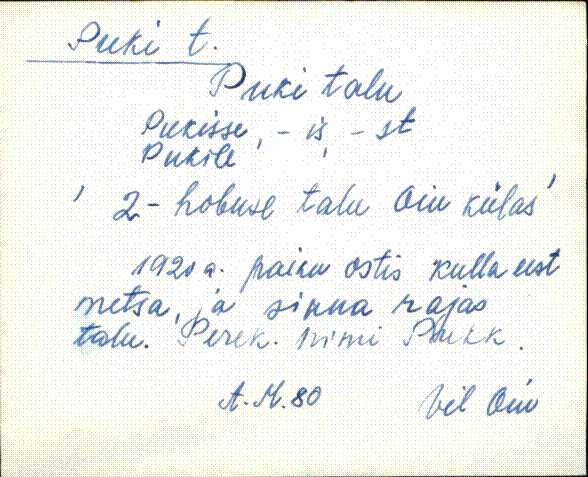 Puki t.
Puki talu
Pukisse, -is, -st
Pukile
' 2-hobuse talu Oiu külas'
1920 a. paiku ostis kulla eest
metsa, ja sinna rajas
talu. Perek. nimi Pukk.
A.M. 80 Vil Oiu